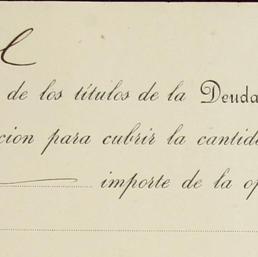 de los títulos de la Deuda
para cubrir la
importe de la